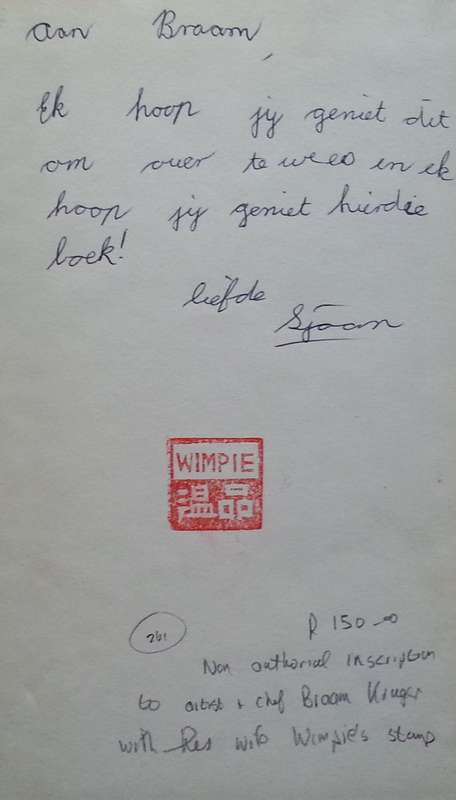 aan Braam,
Ek hoop jy geniet dit
om ouer te wees en ek
hoop jy geniet hierdie
boek!
liefde
Sjaan
WIMPIE
温品
R 150-00
261
Non authorial inscription
to artist + chef Braam Kruger
with his wife Wimpie's stamp